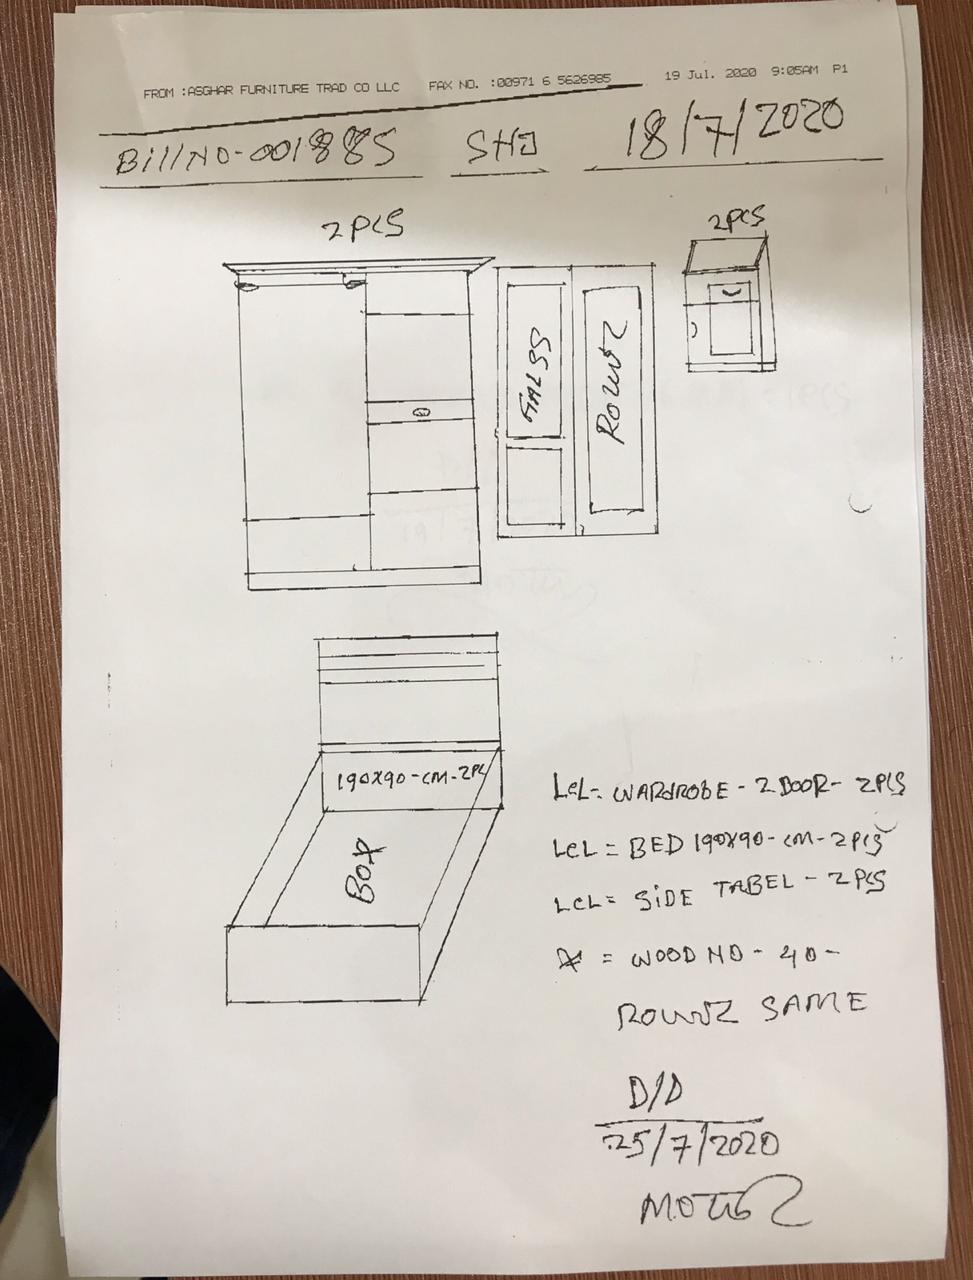 FROM :ASGHAR FURNITURE TRAD CO LLC FAX NO. :00971 6 5626985 19 Jul. 2020 9:05AM P1
Bill NO-001885 SHJ 18/7/2020
2PCS
2PCS
GALSS
ROUNZ
190X90-CM-2PC
BOX
LCL= WARDROBE - 2 DOOR- 2PCS
LCL = BED 190X90-CM-2PCS
LCL= SiDE TABEL - 2PCS
= WOOD NO - 40-
ROUNZ SAME
D/D
25/7/2020